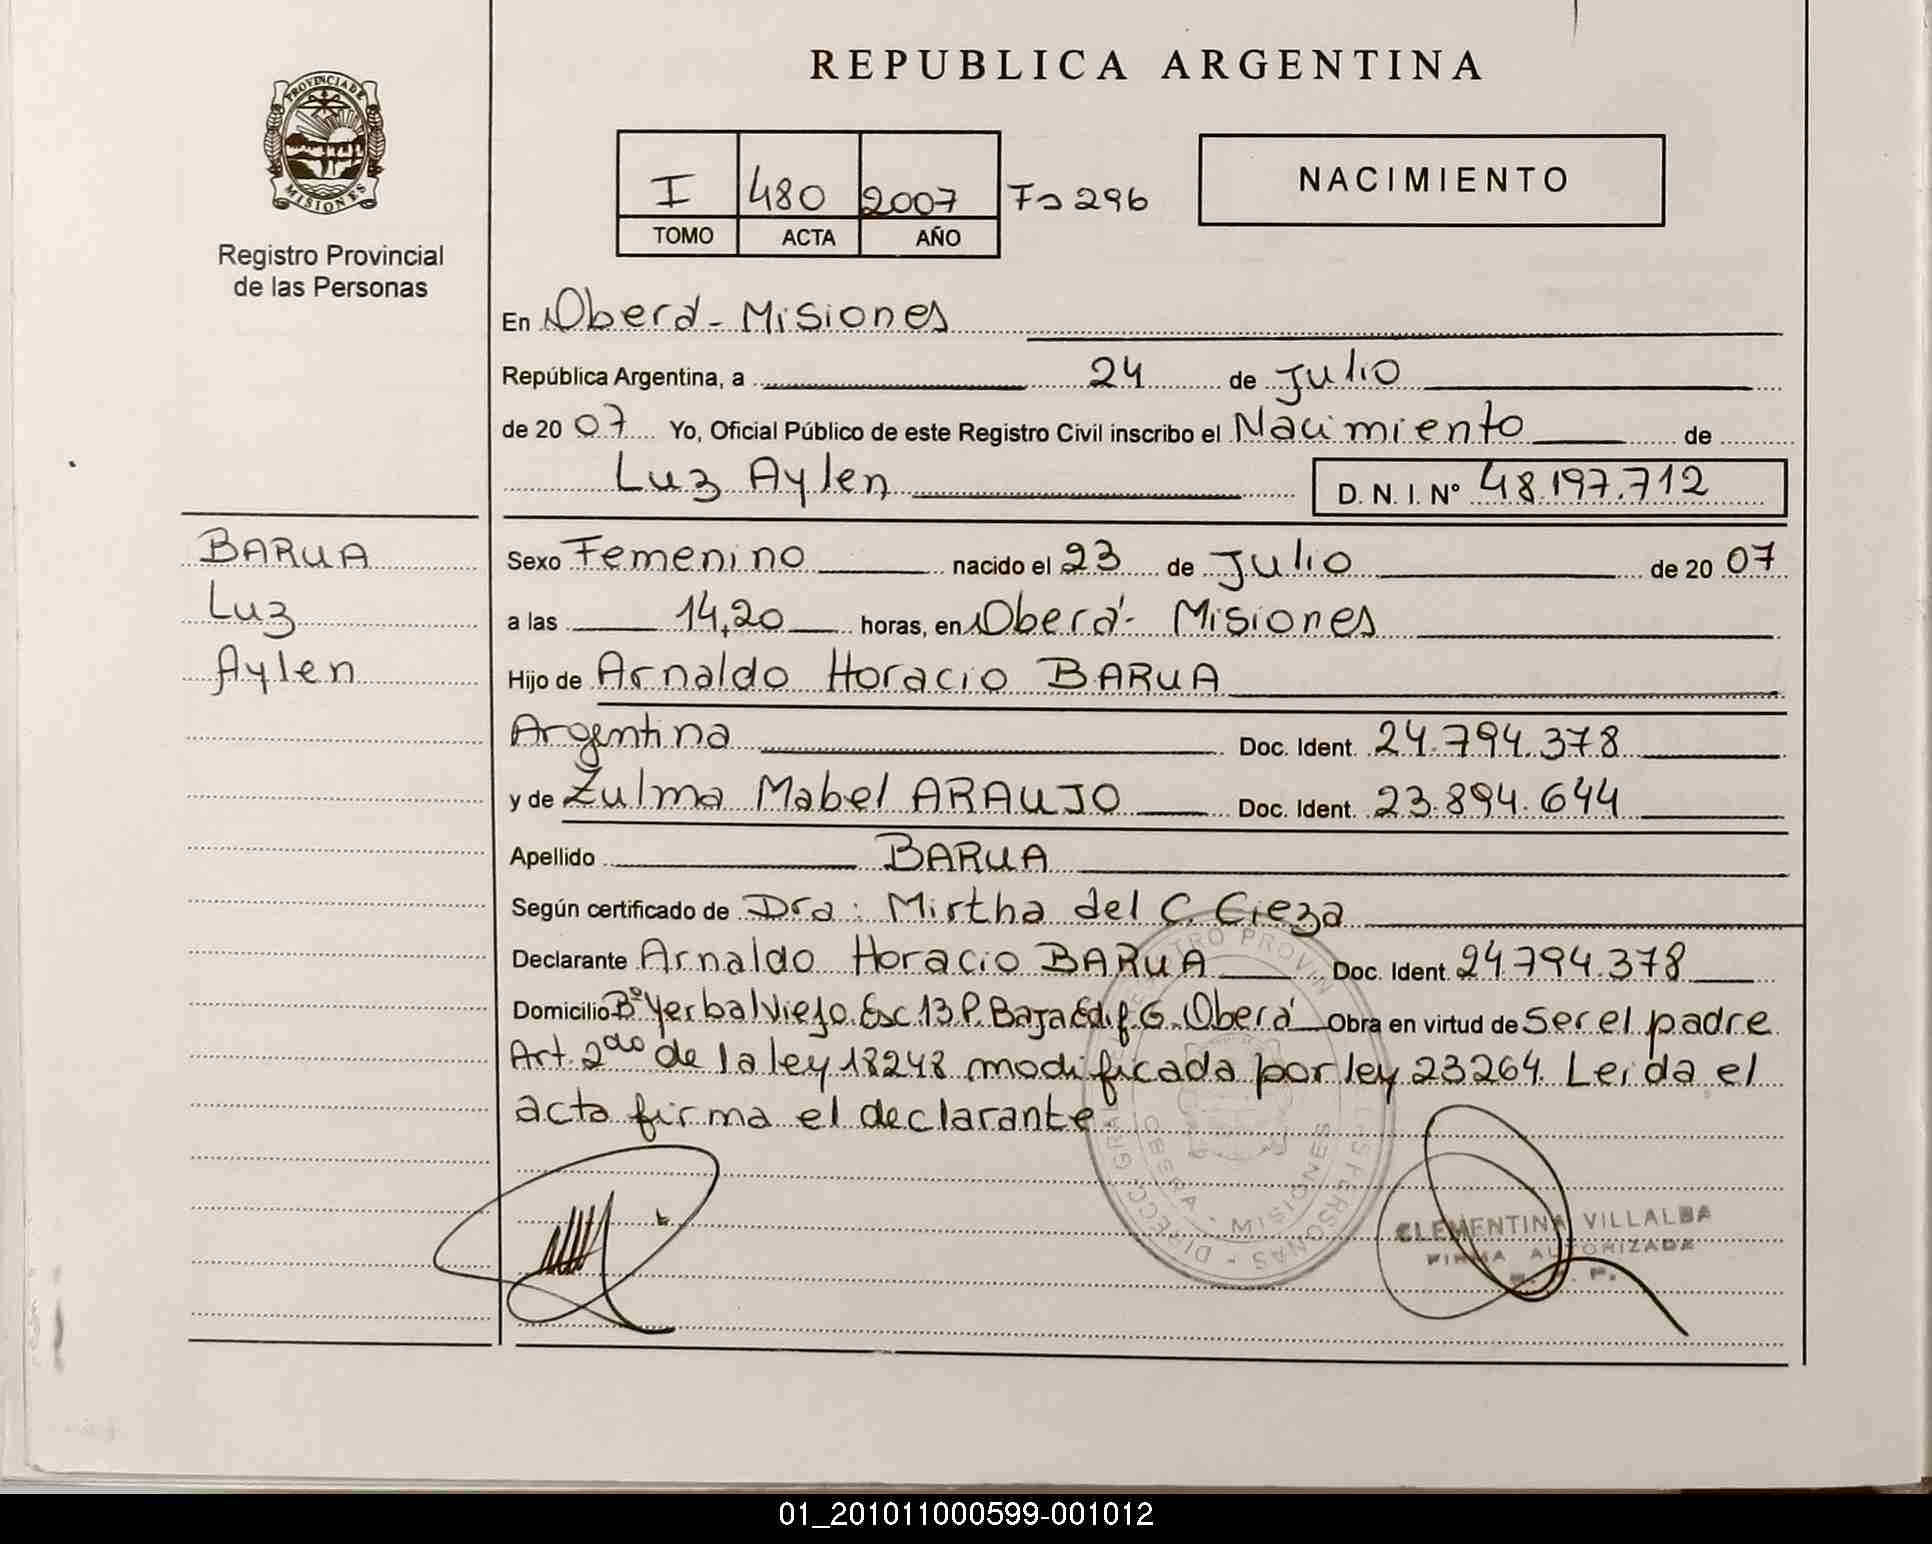 REPUBLICA ARGENTINA
PROVINCIA DE
MISIONES
Registro Provincial
de las Personas
I 480 2007 Fo 296
TOMO ACTA AÑO
NACIMIENTO
En Oberá - Misiones
República Argentina, a 24 de Julio
de 20 07 Yo, Oficial Público de este Registro Civil inscribo el Nacimiento de
Luz Aylen D. N. I. Nº 48.197.712
BARUA
Luz
Aylen
Sexo Femenino nacido el 23 de Julio de 20 07
a las 14,20 horas, en Oberá - Misiones
Hijo de Arnaldo Horacio BARUA
Argentina Doc. Ident. 24.794.378
y de Zulma Mabel ARAUJO Doc. Ident. 23.894.644
Apellido BARUA
Según certificado de Dra: Mirtha del C. Cieza
Declarante Arnaldo Horacio BARUA Doc. Ident. 24.794.378
Domicilio Bº Yerbal Viejo Esc. 13 P. Baja Edif. G. Oberá Obra en virtud de Ser el padre
Art. 2do de la ley 18248 modificada por ley 23264. Leida el
acta firma el declarante
OBERA - MISIONES
CLEMENTINA VILLALBA
FIRMA AUTORIZADA
01_201011000599-001012